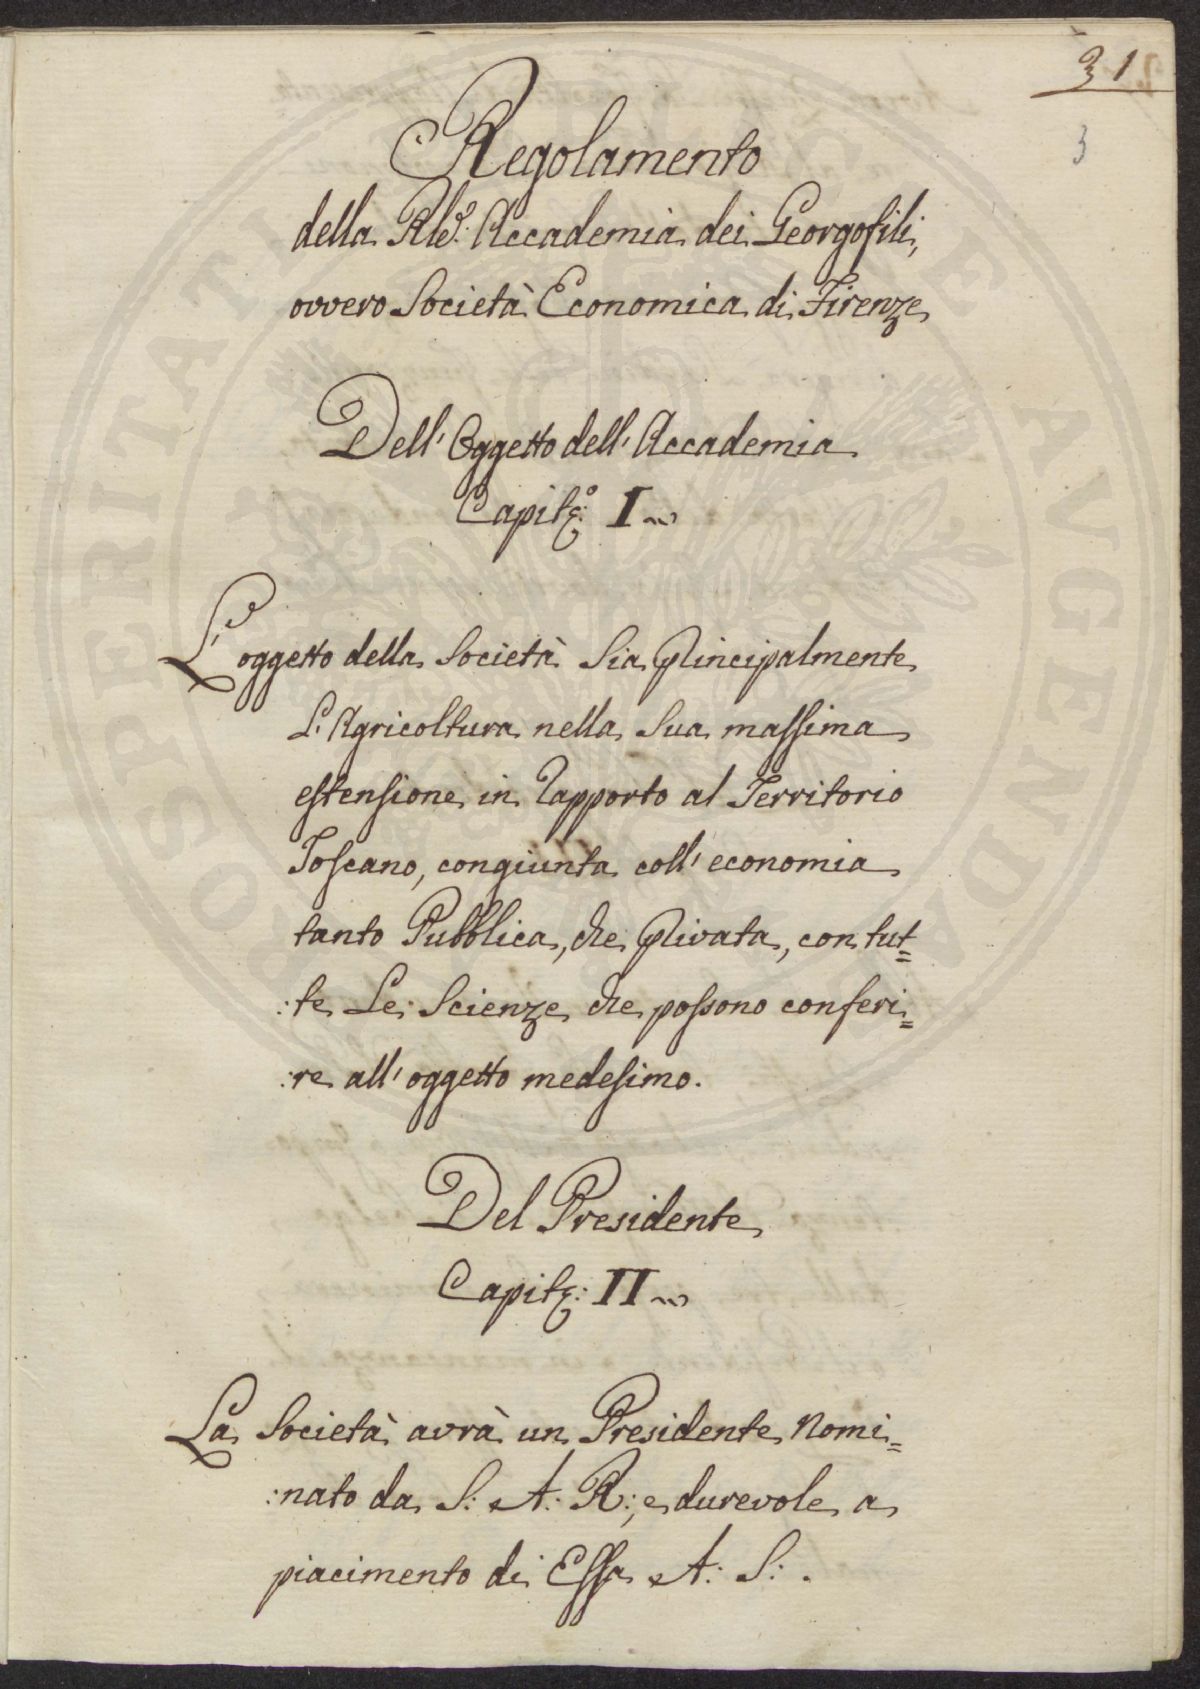 31
3
Regolamento
della Rle. Accademia dei Georgofili,
ovvero Società Economica di Firenze
Dell' Oggetto dell' Accademia
Capit:o I
L'oggetto della Società Sia principalmente
L'Agricoltura nella Sua massima
estensione in rapporto al Territorio
Toscano, congiunta coll' economia
tanto Pubblica, che privata, con tut=
:te Le Scienze che possono conferi=
:re all' oggetto medesimo.
Del Presidente
Capit: II
La Società avrà un Presidente Nomi=
:nato da S: A: R:, e durevole a
piacimento di Essa A: S: .
PROSPERITATI PUBLICAE AVGENDAE